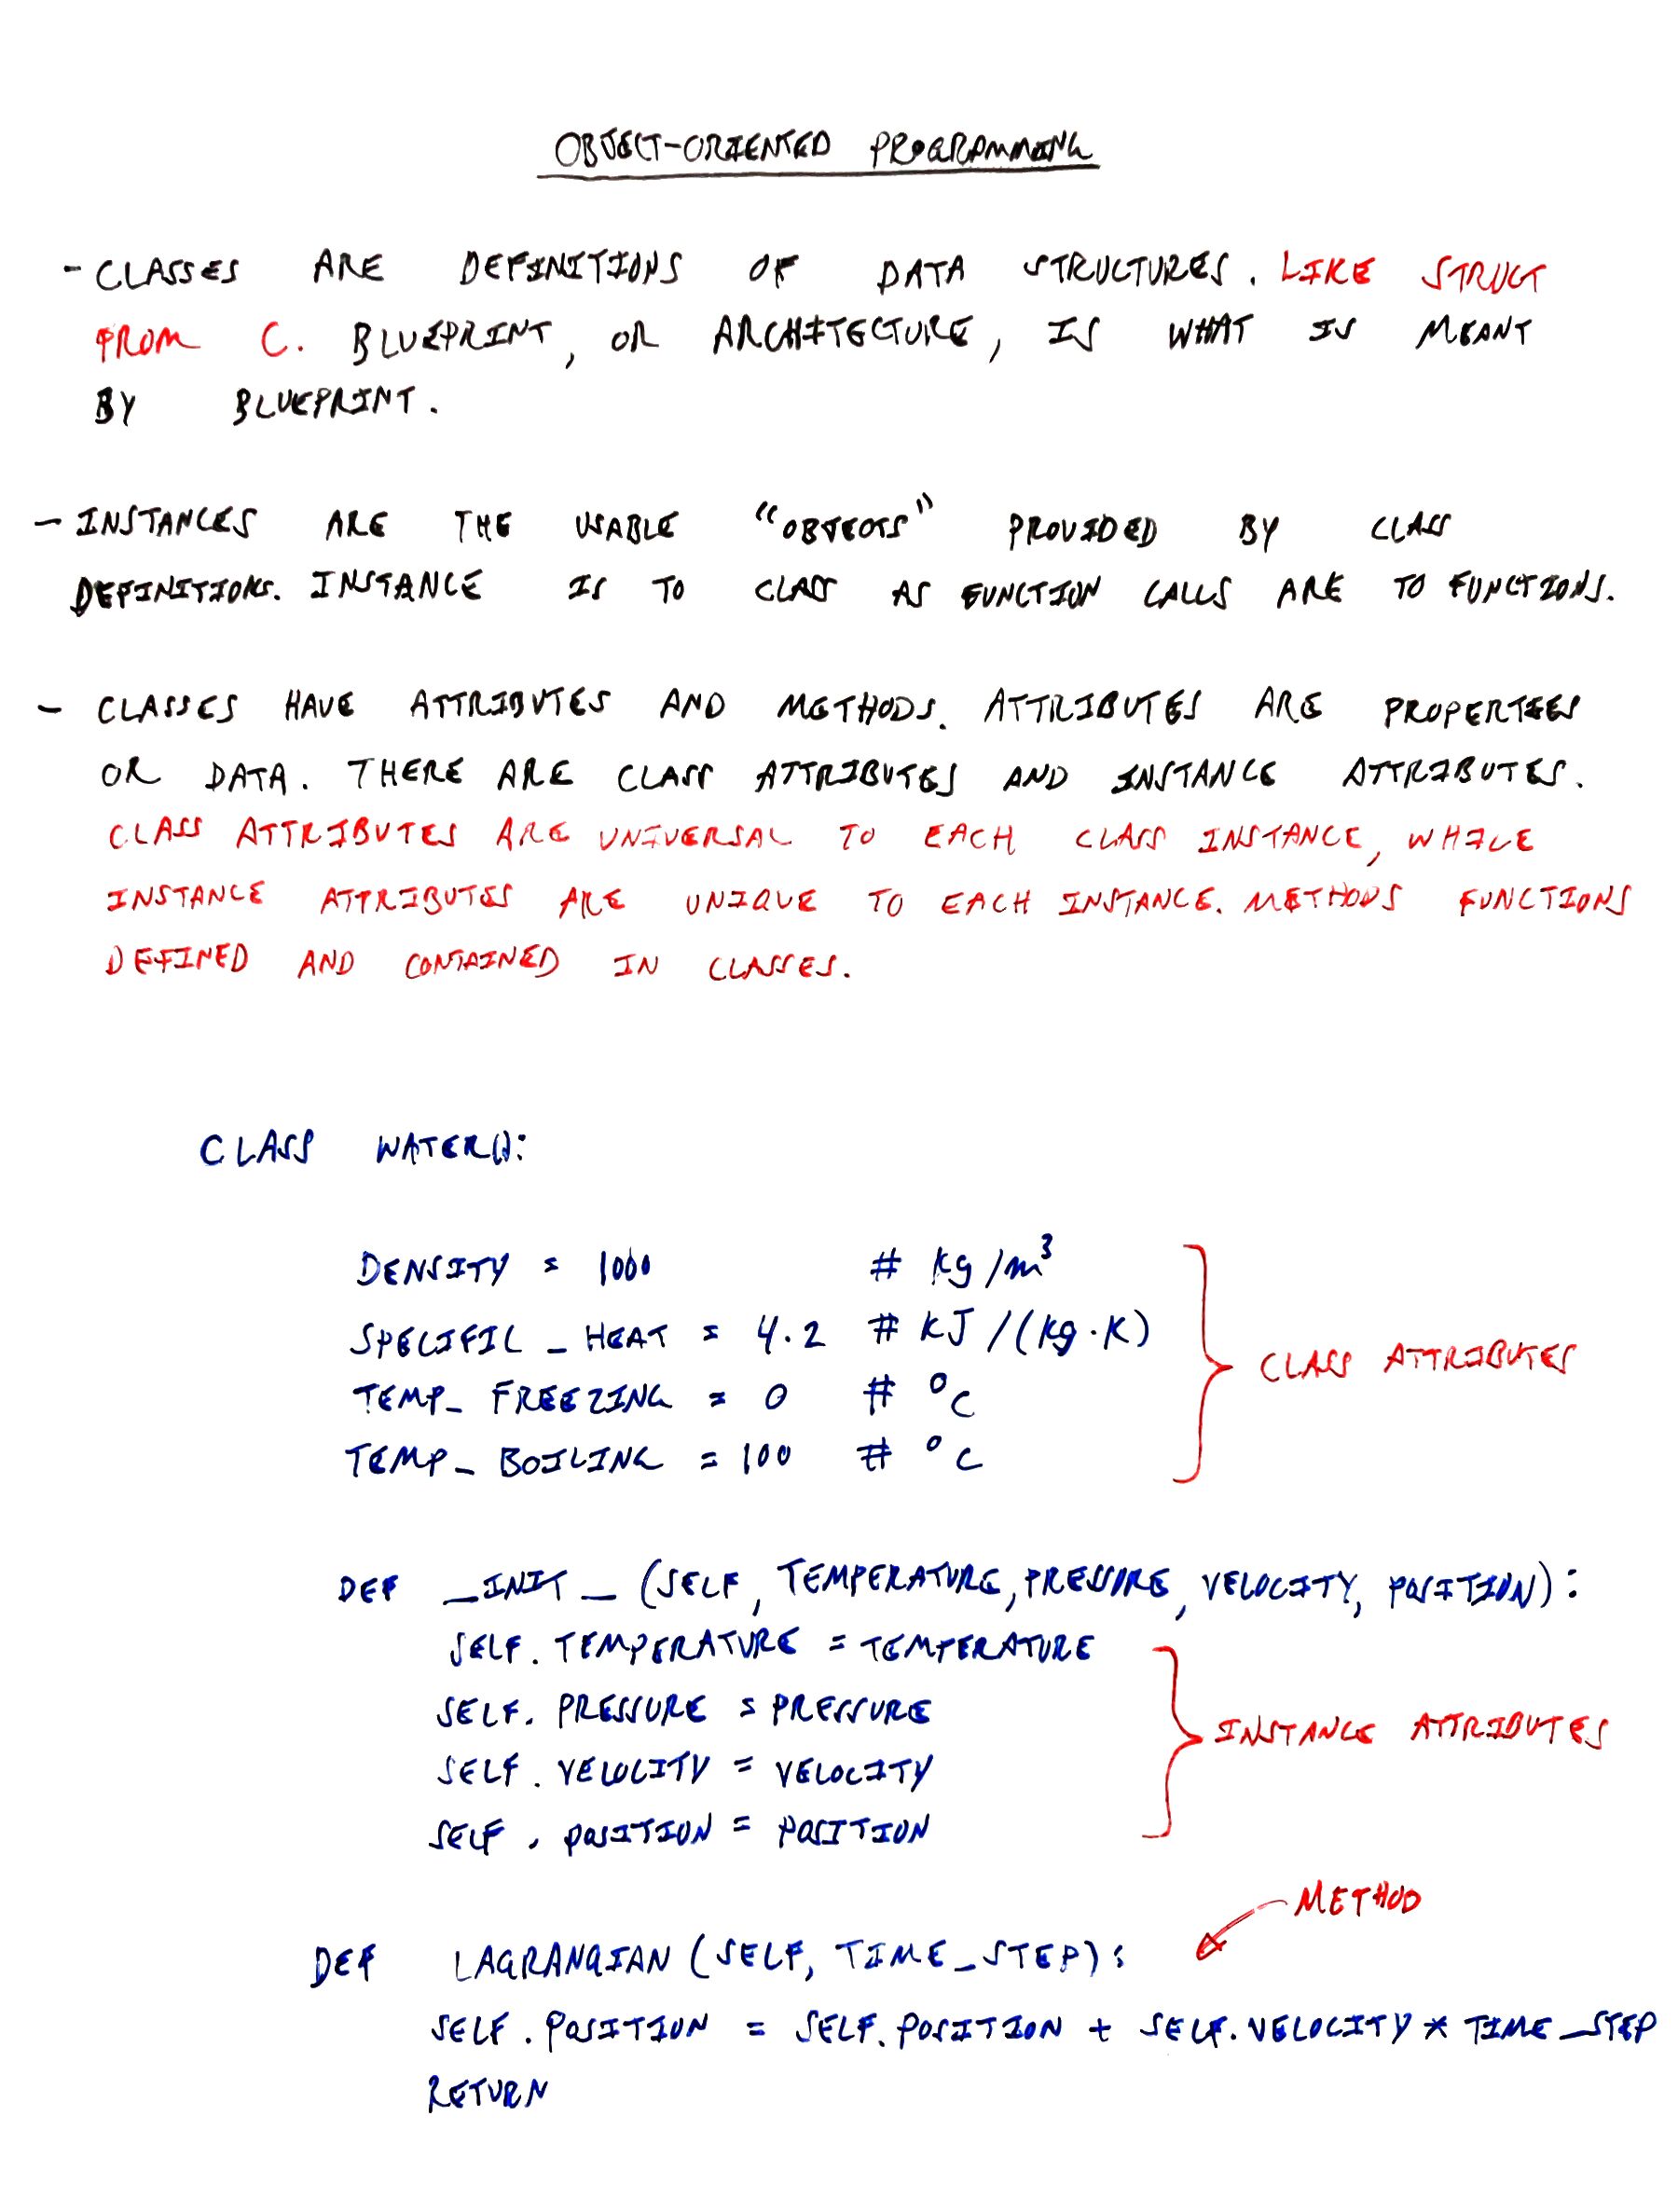 OBJECT-ORIENTED PROGRAMMING
- CLASSES ARE DEFINITIONS OF DATA STRUCTURES. LIKE STRUCT
FROM C. BLUEPRINT, OR ARCHITECTURE, IS WHAT IS MEANT
BY BLUEPRINT.
- INSTANCES ARE THE USABLE "OBJECTS" PROVIDED BY CLASS
DEFINITIONS. INSTANCE IS TO CLASS AS FUNCTION CALLS ARE TO FUNCTIONS.
- CLASSES HAVE ATTRIBUTES AND METHODS. ATTRIBUTES ARE PROPERTIES
OR DATA. THERE ARE CLASS ATTRIBUTES AND INSTANCE ATTRIBUTES.
CLASS ATTRIBUTES ARE UNIVERSAL TO EACH CLASS INSTANCE, WHILE
INSTANCE ATTRIBUTES ARE UNIQUE TO EACH INSTANCE. METHODS FUNCTIONS
DEFINED AND CONTAINED IN CLASSES.
CLASS WATER():
DENSITY = 1000 # kg/m³
SPECIFIC_HEAT = 4.2 # kJ/(kg·K)
TEMP_FREEZING = 0 # °C
TEMP_BOILING = 100 # °C
CLASS ATTRIBUTES
DEF _INIT_ (SELF, TEMPERATURE, PRESSURE, VELOCITY, POSITION):
SELF.TEMPERATURE = TEMPERATURE
SELF.PRESSURE = PRESSURE
SELF.VELOCITY = VELOCITY
SELF.POSITION = POSITION
INSTANCE ATTRIBUTES
METHOD
DEF LAGRANGIAN (SELF, TIME_STEP):
SELF.POSITION = SELF.POSITION + SELF.VELOCITY * TIME_STEP
RETURN